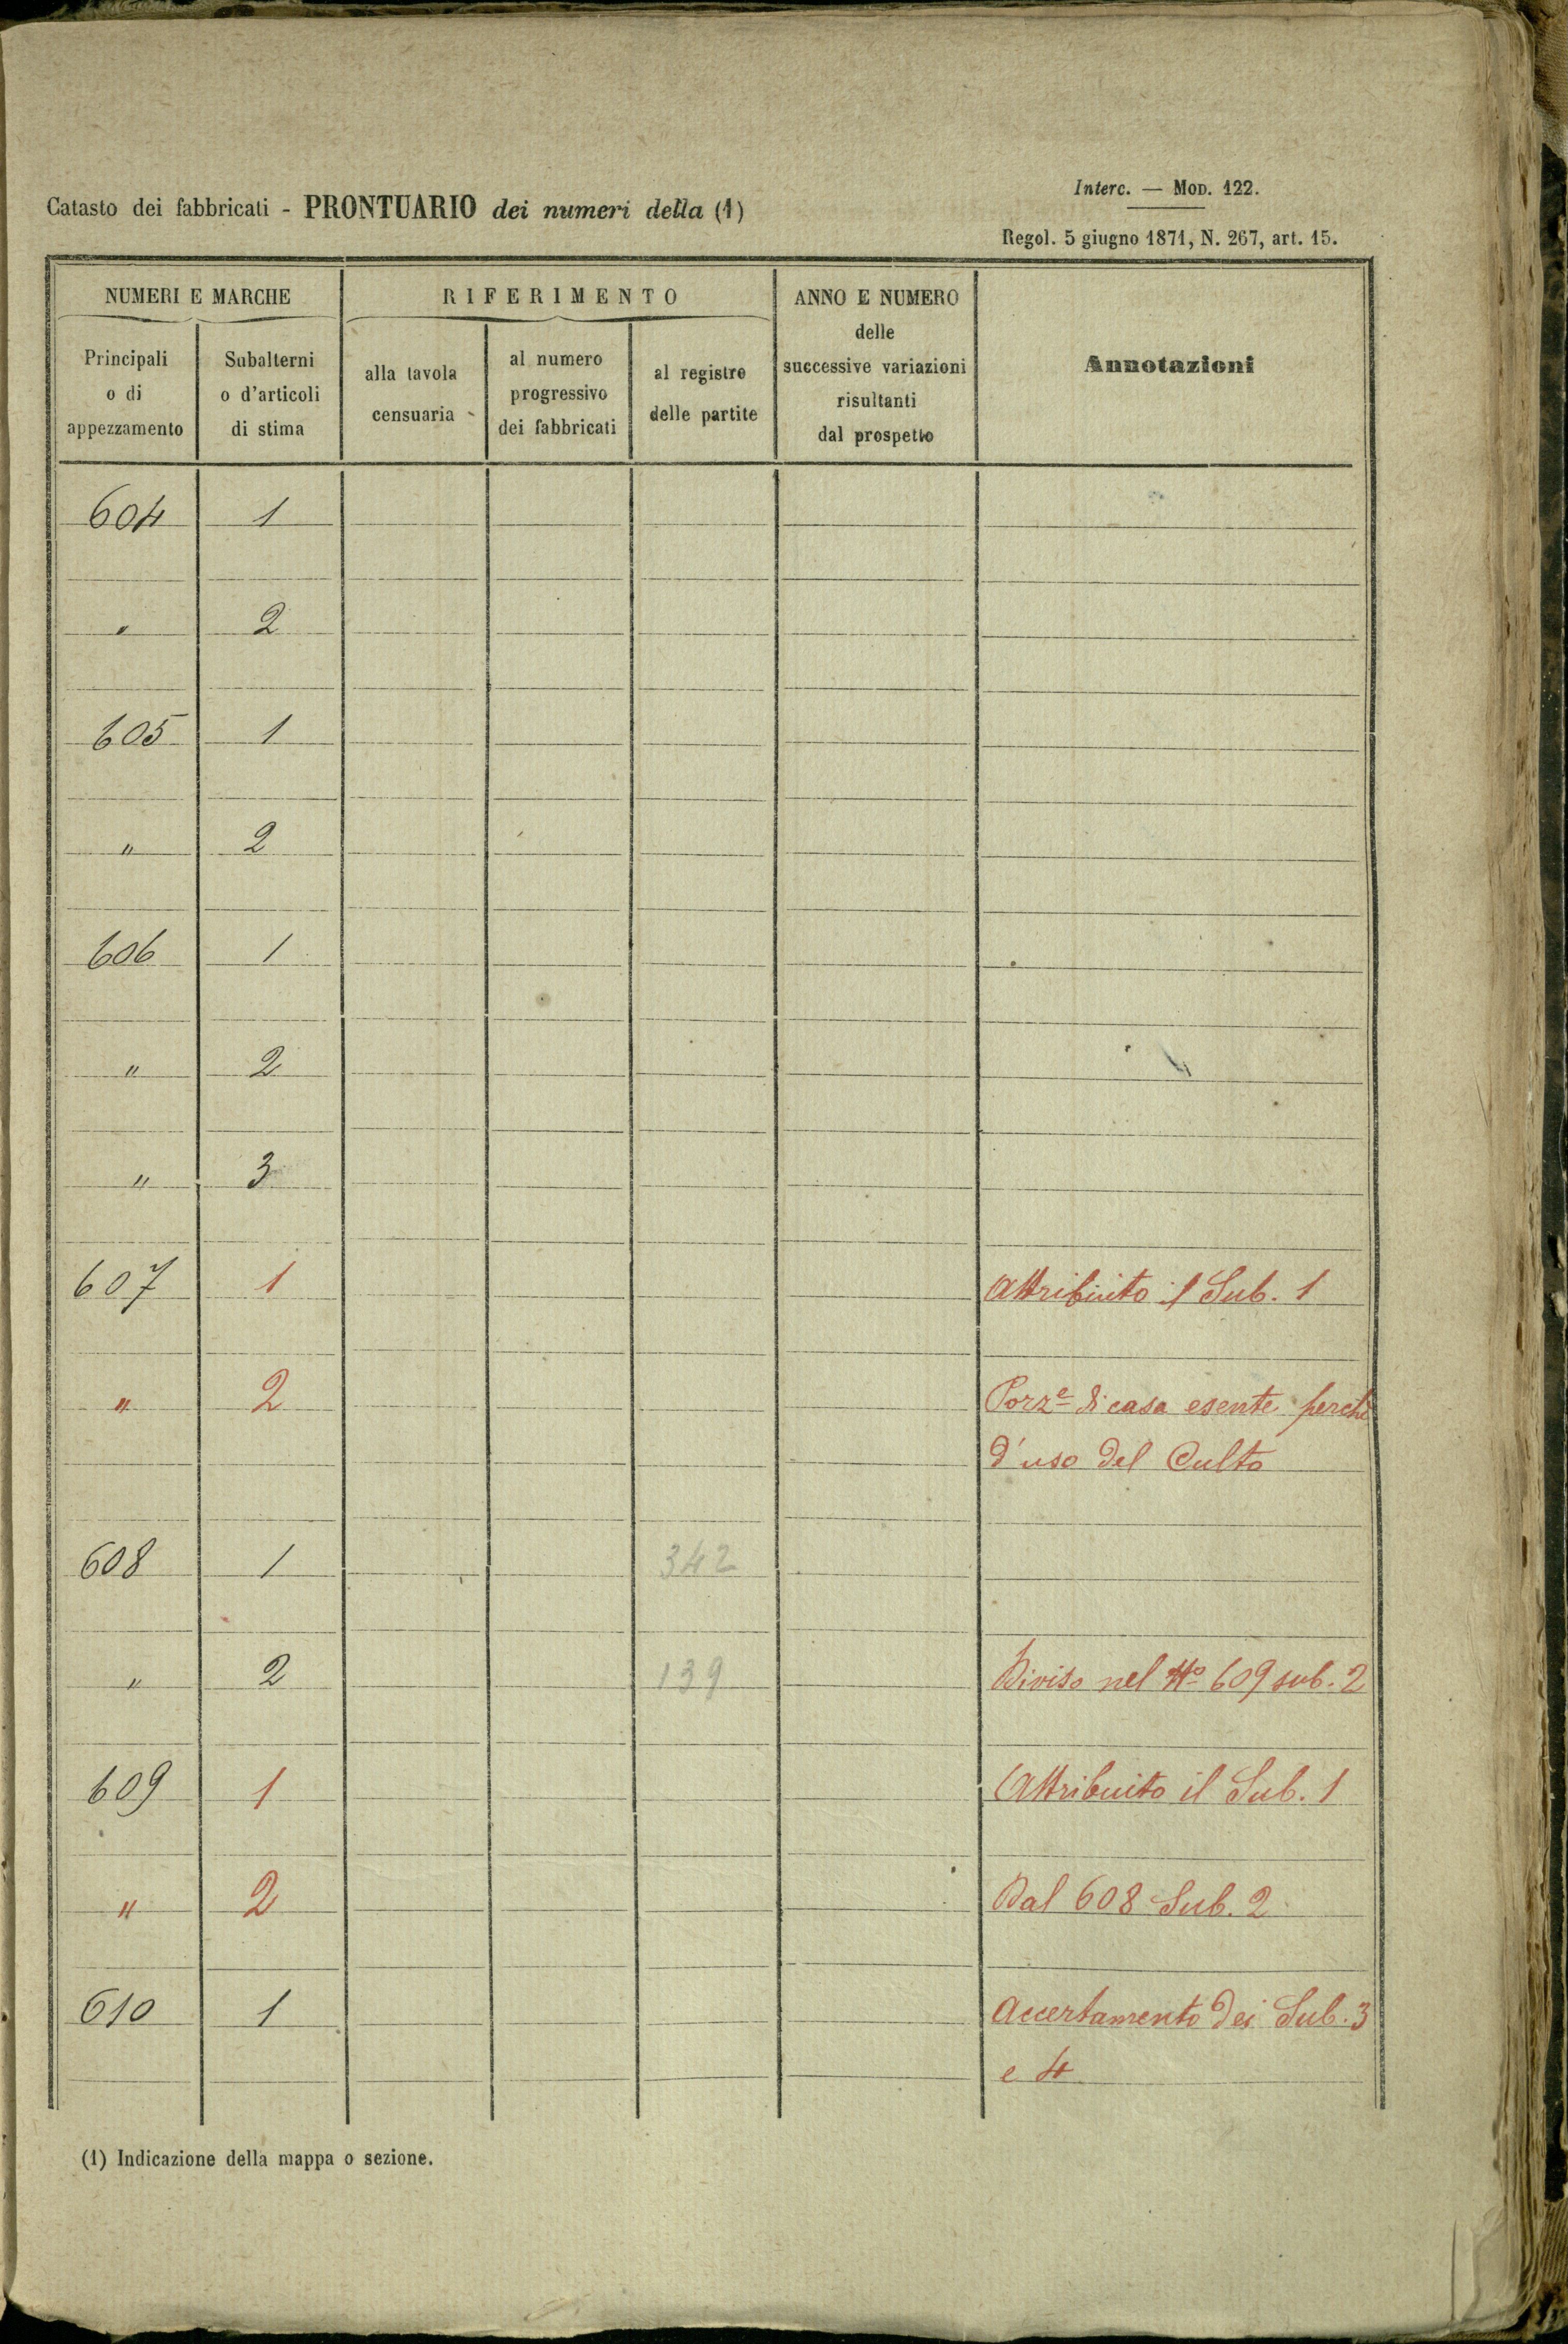 Interc. — Mod. 122.
Catasto dei fabbricati - PRONTUARIO dei numeri della (1)
Regol. 5 giugno 1871, N. 267, art. 15.
NUMERI E MARCHE
Principali
o di
appezzamento
Subalterni
o d'articoli
di stima
RIFERIMENTO
alla tavola
censuaria
al numero
progressivo
dei fabbricati
al registro
delle partite
ANNO E NUMERO
delle
successive variazioni
risultanti
dal prospetto
Annotazioni
604 1
" 2
605 1
" 2
606 1
" 2
" 3
607 1 Attribuito il Sub. 1
" 2 Porz.e di casa esente perchè
d'uso del Culto
608 1 342
" 2 139 Diviso nel No 609 sub. 2
609 1 Attribuito il Sub. 1
" 2 Dal 608 Sub. 2
610 1 Accertamento dei Sub. 3
e 4
(1) Indicazione della mappa o sezione.